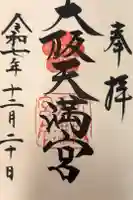 奉拝
大阪天満宮
令和七年十二月二十日